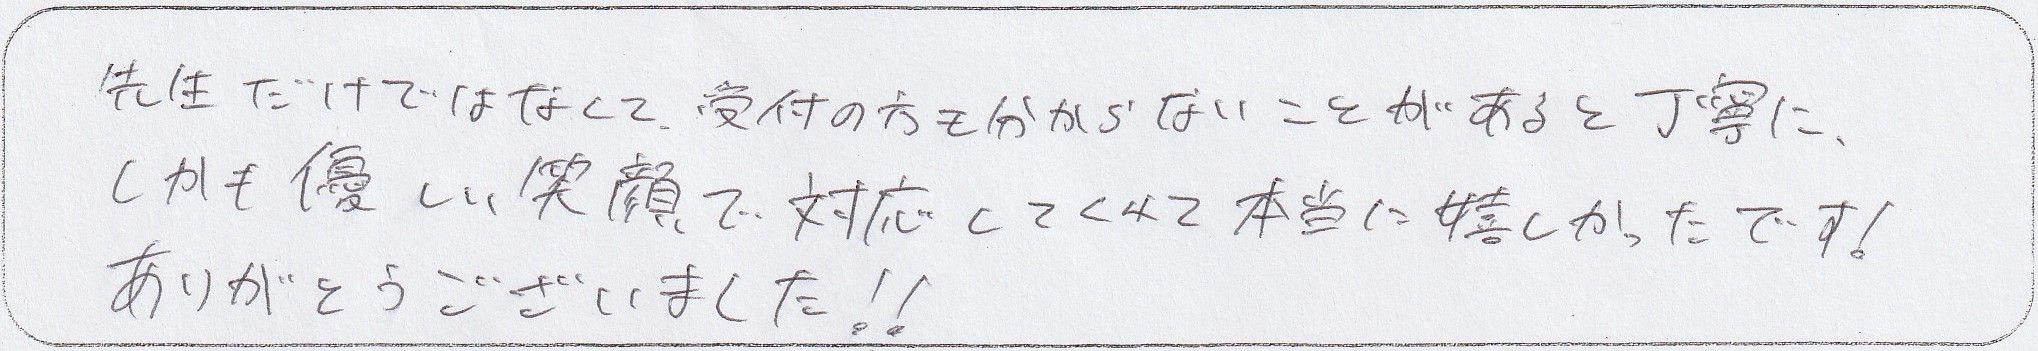 先生だけではなくて、受付の方も分からないことがあると丁寧に、
しかも優しい笑顔で対応してくれて本当に嬉しかったです!
ありがとうございました!!